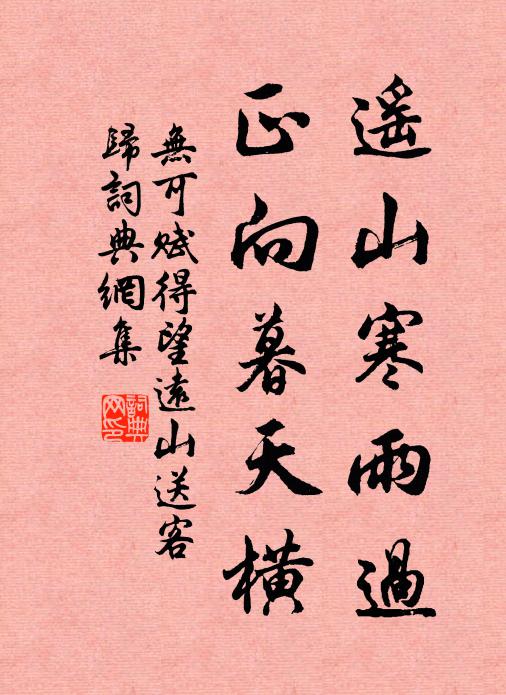 遥山寒雨過
正向暮天橫
無可賦得望遠山送客
歸詞典網集
詞典網印